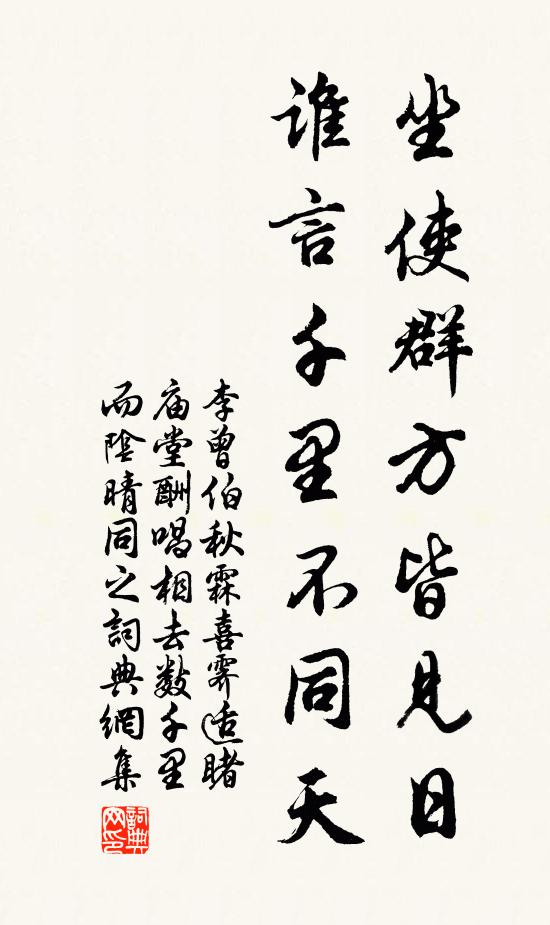 坐使群方皆見日
誰言千里不同天
李曾伯秋霖喜霽适睹
庙堂酬唱相去数千里
而陰晴同之詞典網集
詞典网印